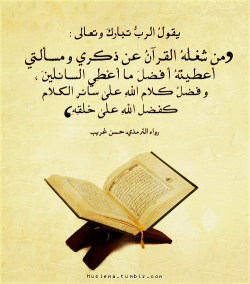 يقول الرب تبارك وتعالى :
„من شغله القرآن عن ذكري ومسألتي
أعطيته أفضل ما أعطي السائلين ،
وفضل كلام الله على سائر الكلام
كفضل الله على خلقه„
رواه الترمذي حسن غريب
Muslema.tumblr.com